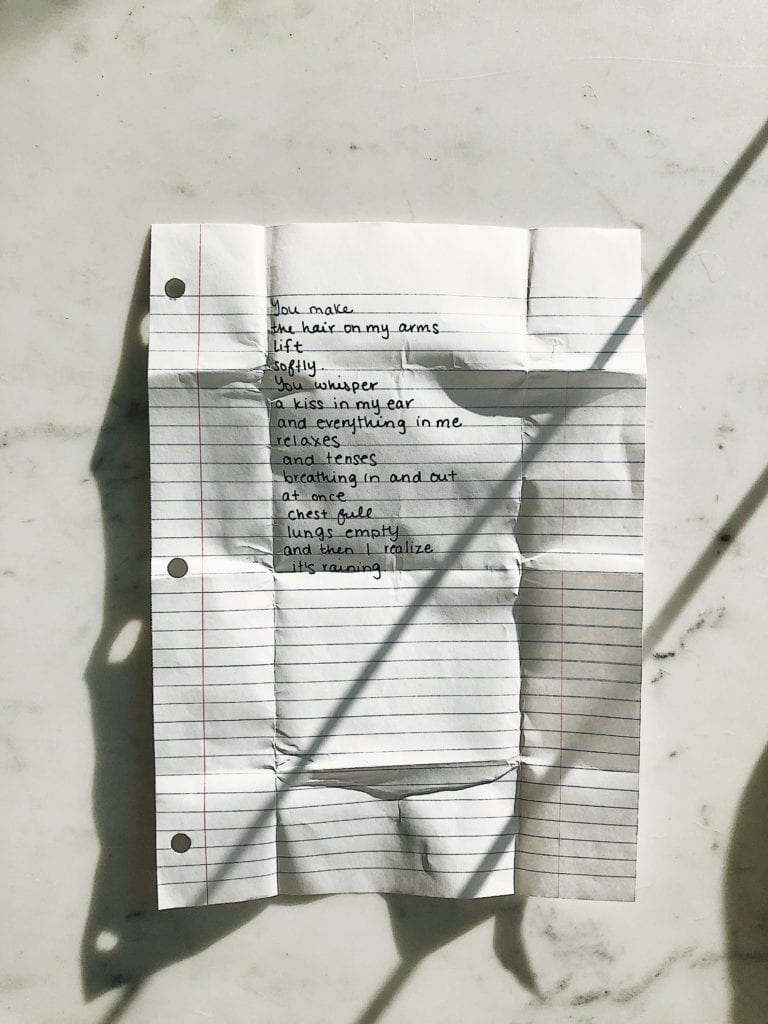 You make
the hair on my arms
Lift
softly.
You whisper
a kiss in my ear
and everything in me
relaxes
and tenses
breathing in and out
at once
chest full
lungs empty
and then I realize
it's raining